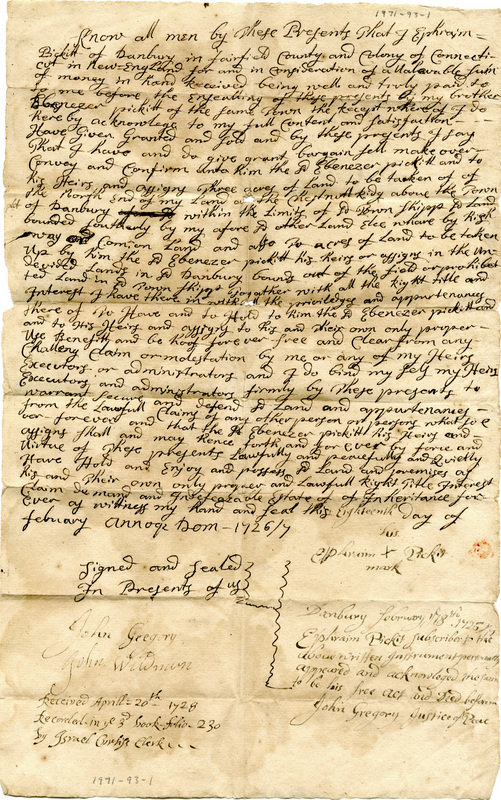 1971-93-1
Know all men by These Presents That I Ephraim
Pickitt of Danbury in fairfield County and Colony of Connecti-
cut in New-England for and in Consideration of a Valevable sum
of money in hand Received being well and truly paid to
to me before the Ensealing of these presents by my brother
Ebenezer pickitt of the same Town the Receipt whereof I do
here by acknowledge to my full Content and Satisfaction
Have Given Granted and sold and by these presents I say
That I have and do give grant bargain sell make over
Convey and Confirm unto him the sd Ebenezer pickitt and to
his Heirs and assigns Three acres of Land to be taken of of
the North End of my Land at the Chestnutt Ridg above the Town
of Danbury within the Limits of sd Town Shipp sd Land
bounded Southerly by my afore sd other Land Else whare by High
way or Comion Land and also acres of Land to be taken
Up by him the sd Ebenezer pickitt his Heirs or assigns in the Un-
devided Lands in sd Danbury bounds out of the field or prohibit
ted Land in sd Town Shipp Together with all the Right Title and
Interest I have there in with all the priviledges and appurtenances
there of To Have and to Hold to him the sd Ebenezer pickitt and
and to His Heirs and assigns to his and Their own only proper
Use Benefitt and be hoof forever free and Clear from any
Challeng Claim or molestation by me or any of my Heirs
Executors or administrators and I do bind my self my Heirs
Executors and administrators firmly by These presents to
warrant secure and defend sd Land and appurtenances
from the Lawfull Claims of any other person or persons what so e
ver forever and that the sd Ebenezer pickitt his Heirs and
assigns shall and may hence forth and for Ever by force and
Virtue of These presents Lawfully and peacefully and Quietly
Have Hold and Enjoy and possess sd Land and premises as
his and Their own only proper and Lawfull Right Title Interest
Claim demand and Indefeazable Estate of of Inheritance for
Ever as wittness my hand and seal this Eighteenth day of
february Annoqe Dom-1726/7
his
Ephraim X Pickit
mark
Signed and sealed
In Presents of us
John Gregory
John Wildmon
Danbury feorwary 18th 1726/7
Ephraim Pickit subscriber to the
above written Instrument personally
appeared and acknowledged the same
to be his free act and Deed before me
John Gregory Justice of Peac
Received April-20th 1728
Recorded in ye 3d book folio-230
by Israel Curtiss Clerk
1971-93-1